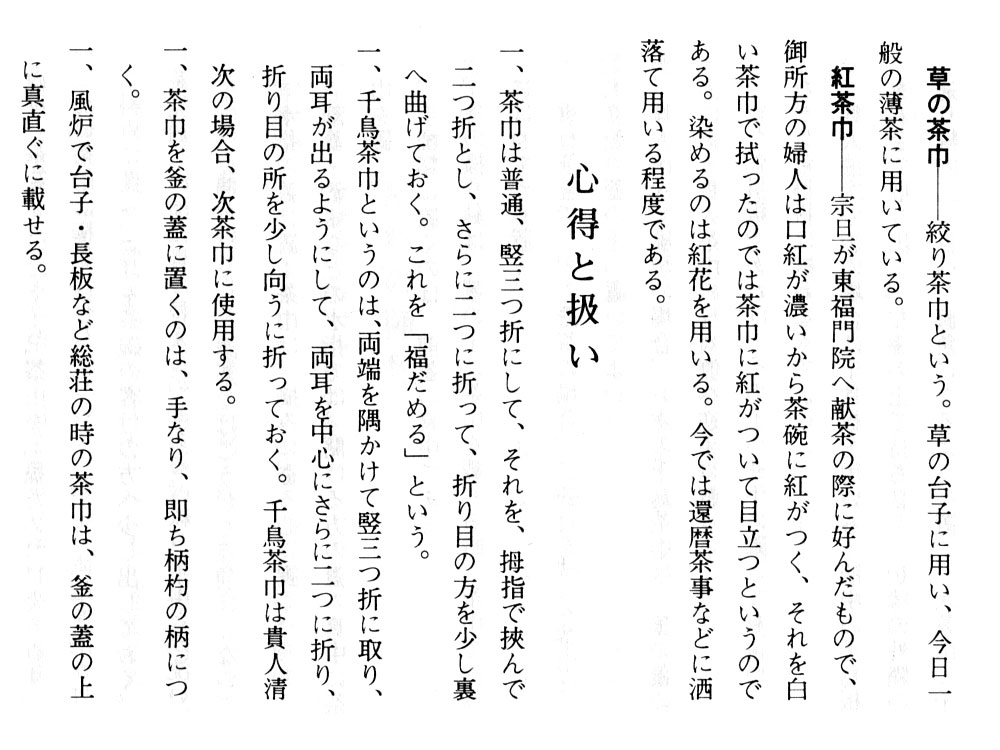 草の茶巾――絞り茶巾という。草の台子に用い、今日一
般の薄茶に用いている。
紅茶巾――宗旦が東福門院へ献茶の際に好んだもので、
御所方の婦人は口紅が濃いから茶碗に紅がつく、それを白
い茶巾で拭ったのでは茶巾に紅がついて目立つというので
ある。染めるのは紅花を用いる。今では還暦茶事などに洒
落て用いる程度である。
心得と扱い
一、茶巾は普通、竪三つ折にして、それを、拇指で挟んで
二つ折とし、さらに二つに折って、折り目の方を少し裏
へ曲げておく。これを「福だめる」という。
一、千鳥茶巾というのは、両端を隅かけて竪三つ折に取り、
両耳が出るようにして、両耳を中心にさらに二つに折り、
折り目の所を少し向うに折っておく。千鳥茶巾は貴人清
次の場合、次茶巾に使用する。
一、茶巾を釜の蓋に置くのは、手なり、即ち柄杓の柄につ
く。
一、風炉で台子・長板など総荘の時の茶巾は、釜の蓋の上
に真直ぐに載せる。